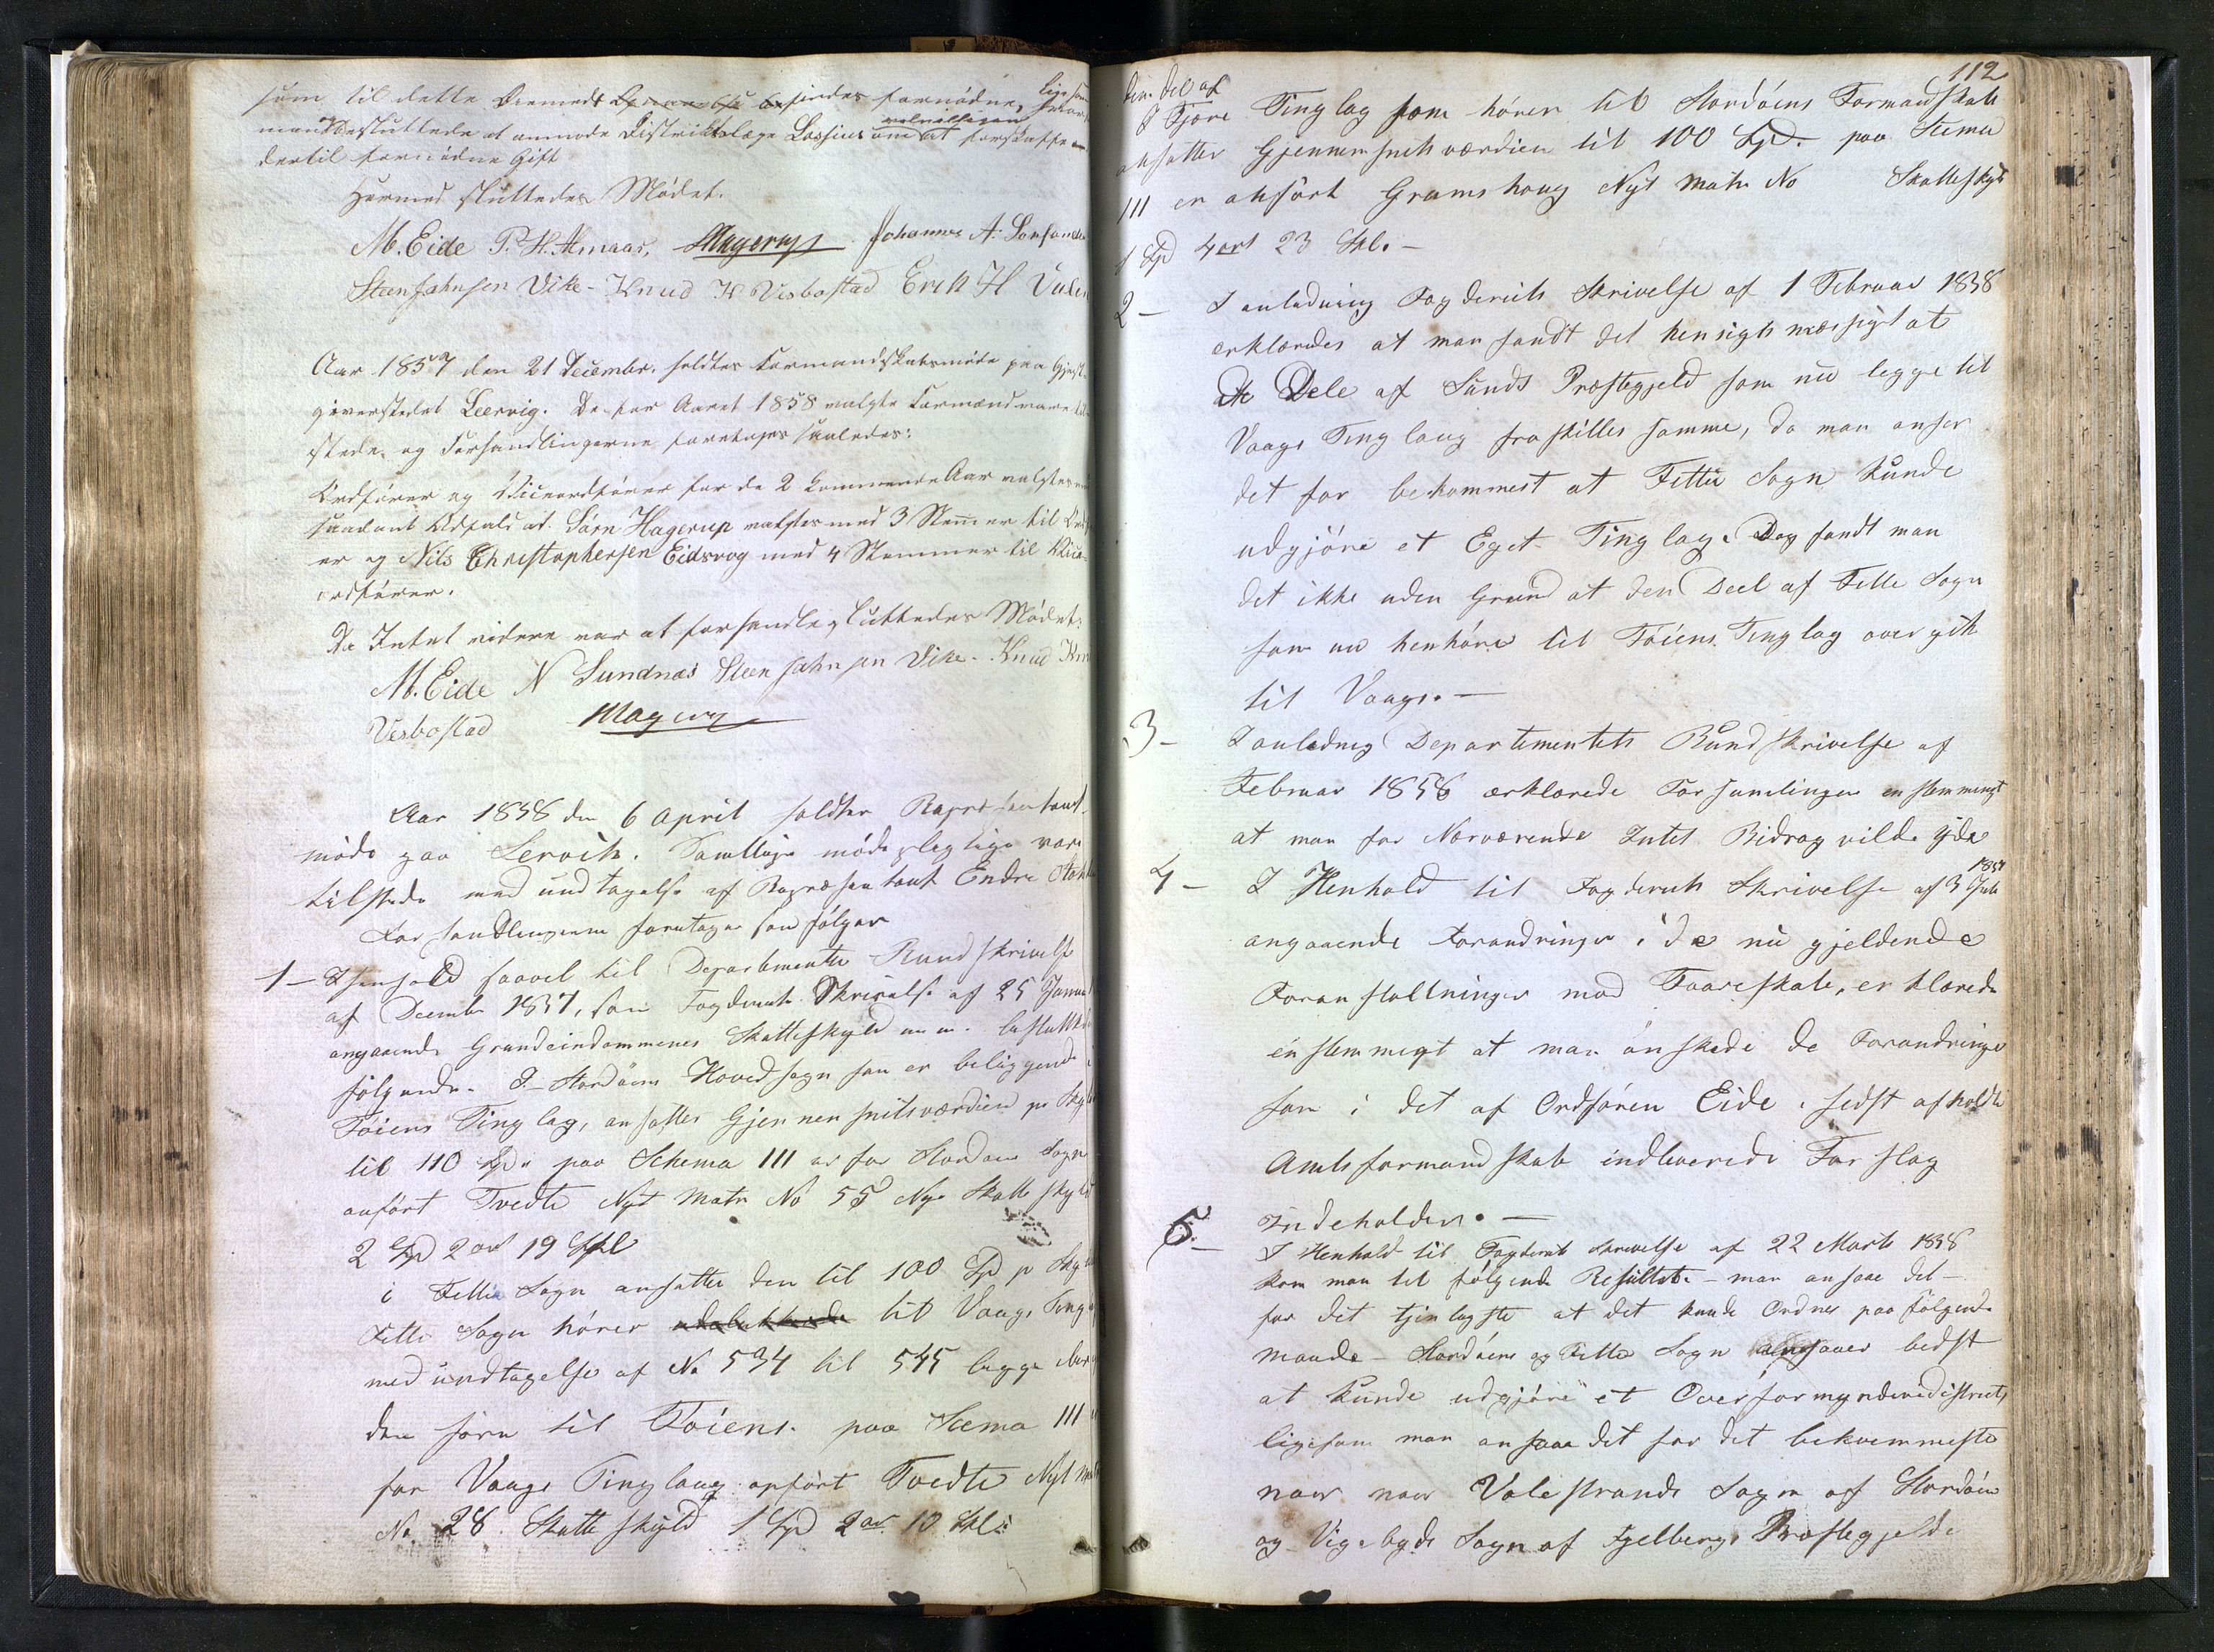 som til dette Øiemed befindes fornødne, ligesom
man besluttede at anmode Distriktslæge Lossius velvilligen om at forskaffe
dertil fornødne Gift
Hermed sluttedes Mødet.
M. Eide P. H. Almaas, SHagerup Johannes A.
Steen Jahnsen Vike - Knud K Vesbostad Erich H
Aar 1857 den 21 Decembr. holdtes Formandskabsmøde paa Gjæst-
giverstedet Leervig. De for Aaret 1858 valgte Formænd vare til
stede, og Forhandlingerne foretoges saaledes:
Ordfører og Viceordfører for de 2 kommende Aar valgtes med
saadant Udfald at Sørn Hagerup valgtes med 3 Stemmer til Ordfør
er og Nils Christophersen Eidsvog med 4 Stemmer til Vice-
ordfører.
Da Intet videre var at forhandle, sluttedes Mødet.
M. Eide N Sundnæs Steen Jahnsen Vike - Knud Kn
Vesbostad SHagerup
Aar 1858 den 6 April holdtes Repræsentant
møde paa Lervik. Samtlige mødepligtige vare
tilstede med undtagelse af Repræsentant Endre
Forhandlingerne foretoges som følger
1 - I henhold saavel til Departementets Rundskrivelse
af Decembr 1857, som Fogderiets Skrivelse af 25 Januar
angaaende Grundeiendommenes Skatteskyld m. m. besluttedes
følgende. I Stordøens Hovedsogn som er beliggende i
Føiens Tinglag, ansattes Gjennemsnitsværdien pr Skyld
til 110 Spd. paa Schema III er for Stordøens Sogn
anført Tvedte Nyt Matr No 55 Nye Skatteskyld
2 Spd 2 ort 19 Skl
i Fittie Sogn ansattes den til 100 Spd pr Sky
Fitie Sogn hører til Vaags Ting
med undtagelse af No 534 til 545 begge
den hører til Føiens. paa Scema III
for Vaags Tinglaug opført Tvedte Nyt Matr
No 28. Skatteskyld 1 Spd 2 ort 10 Skl:
112
den del af
I Fjære Tinglag som hører til Stordøens Formandskab
ansattes Gjennemsnitsværdien til 100 Spd. paa Scema
III er anført Gramshaug Nyt Matr No Skatteskyld
1 Spd 4 ort 23 Skl. -
2 - I anledning Fogderiets Skrivelse af 1 Februar 1858
erklæredes at man fandt det hensigtsmæssigt at
de Dele af Sunds Præstegjeld som nu legge til
Vaags Tinglaug fraskilles samme, da man anser
det for bekvemmest at Fittie Sogn kunde
udgjøre et Eget Tinglag. Dog fandt man
det ikke uden Grund at den Deel af Fitie Sogn
som nu henhøre til Føiens Tinglag overgik
til Vaags. -
3 - I anledning Departementets Rundskrivelse af
Februar 1858 erklærede Forsamlingen enstemmigt
at man for Nærværende Intet Bidrag vilde yde
4 - I Henhold til Fogderiets Skrivelse af 3 Juli 1857
angaaende Forandringer i de nu gjeldende
Foranstaltninger mod Faareskab, erklærede
énstemmigt at man ønskede de Forandringer
som i det af Ordføren Eide i sidst afholdte
Amtsformandskab indleverede Forslag
Indeholder. -
5 - I Henhold til Fogderiets Skrivelse af 22 Marts 1858
kom man til følgende Resultat. - man ansaae det -
for det tjenligste at det kunde Ordnes paa følgende
Maade - Stordøens og Fitie Sogn ansaaes bedst
at kunde udgjøre et Overformynderidistrict,
ligesom man ansaae det for det bekvemmeste
naar Valestrands Sogn af Stordøen
og Vigebygds Sogn af Fjelbergs Præstegjeld